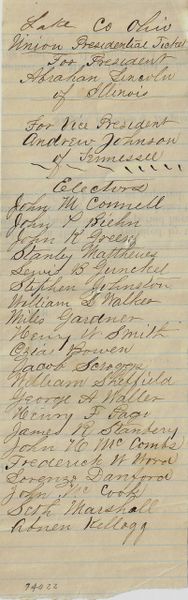 Lake Co Ohio
Union Presidential Ticket
For President
Abraham Lincoln
of Illinois
For Vice President
Andrew Johnson
of Tennessee
Electors
John M Connell
John P Biehn
John K Green
Stanley Matthews
Lewis B Gunckel
Stephen Johnston
William L Walker
Miles Gardner
Henry W Smith
Ozias Bowen
Jacob Scroggs
William Sheffield
George A Waller
Henry F Page
James R Stanbery
John H McCombs
Frederick W Wood
Lorenzo Danford
John Mc Cook
Seth Marshall
Abner Kellogg
74022